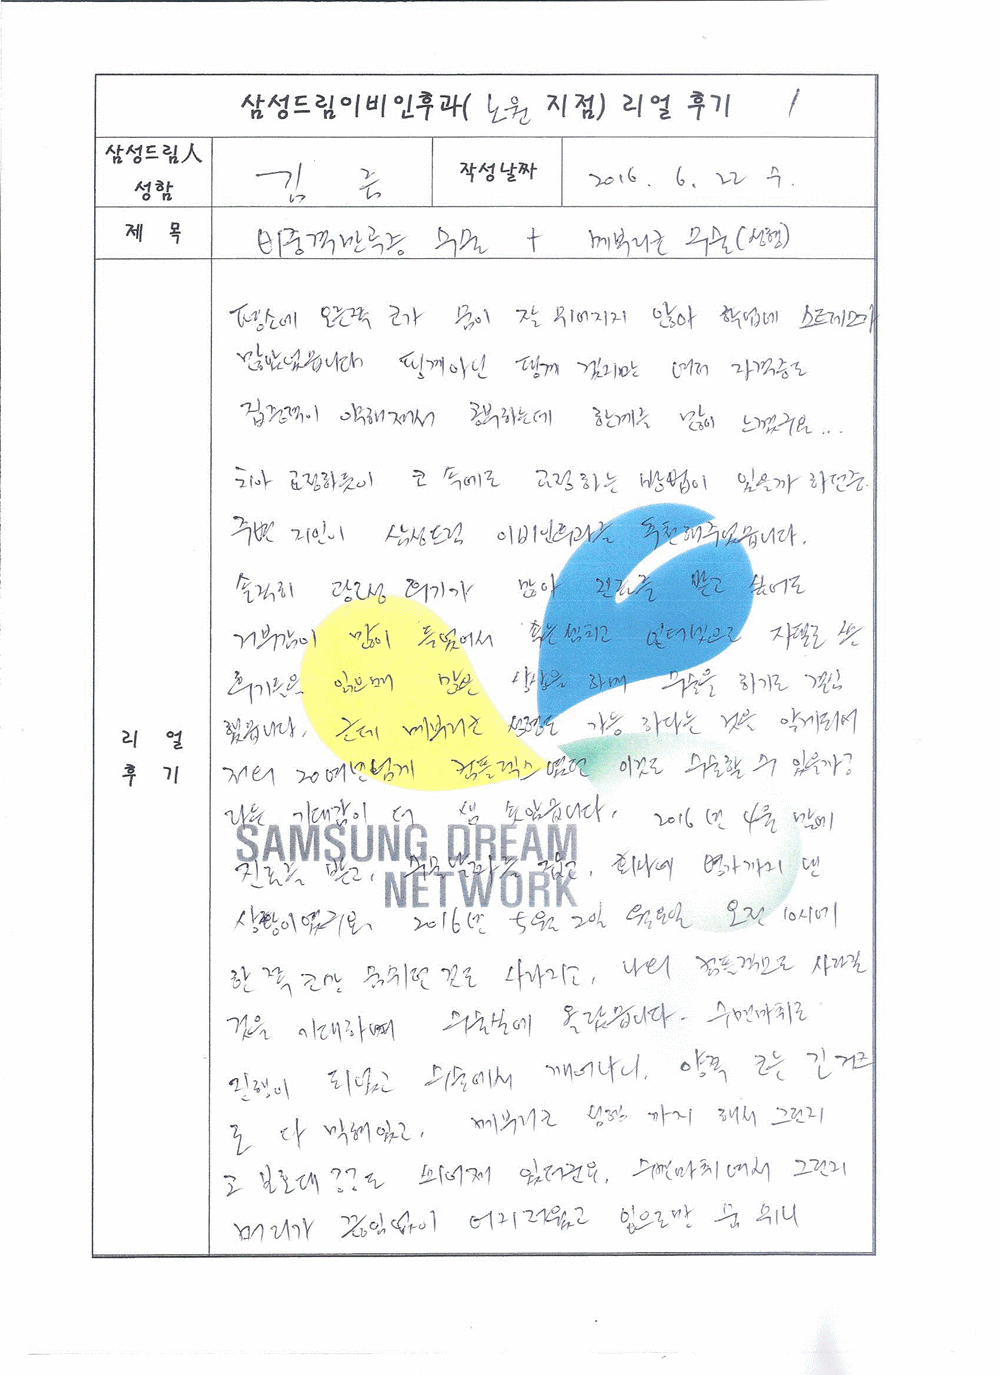 삼성드림이비인후과( 노원 지점) 리얼 후기 1
삼성드림人
성함
김 른
작성날짜
2016. 6. 22 수.
제 목
비중격만곡증 수술 + 메부리코 수술(성형)
리 얼
후 기
평소에 오른쪽 코가 숨이 잘 쉬어지지 않아 학업에 스트레스가
많았었습니다 핑계아닌 핑계 겠지만 여러 자격증도
집중력이 약해져서 공부하는데 한계를 많이 느꼈구요...
치아 교정하듯이 코 속에도 교정하는 방법이 있을까 하던중
주변 지인이 삼성드림 이비인후과를 추천해주었습니다.
솔직히 광고성 후기가 많아 진료를 받고 싶어도
거부감이 많이 들었어서 혹는셈치고 인터넷으로 자필로 쓴
후기들을 읽으며 많은 상상을 하며 수술을 하기로 결심
했습니다. 근데 메부리코 성형도 가능 하다는 것을 알게되어
저의 20여년넘게 컴플렉스였던 이것도 수술할 수 있을까?
라는 기대감이 더 샘 솟았습니다. 2016년 4월 말에
SAMSUNG DREAM
진료를 받고, 수술날짜를 잡고, 회사에 연가까지 낸
NETWORK
상황이였기요. 2016년 5월 2일 월요일 오전 10시에
한 쪽 코만 숨쉬던 것도 사라지고, 나의 컴플렉스도 사라질
것을 기대하며 수술실에 올랐습니다. 수면마취로
진행이 되었고 수술에서 깨어나니, 양쪽 코는 긴 거즈
로 다 막혀있고, 메부리코 성형 까지 해서 그런지
코 보호대 같은 씌어져 있더군요, 수면마취여서 그런지
머리가 끊임없이 어지러웠고 입으로만 숨 쉬니